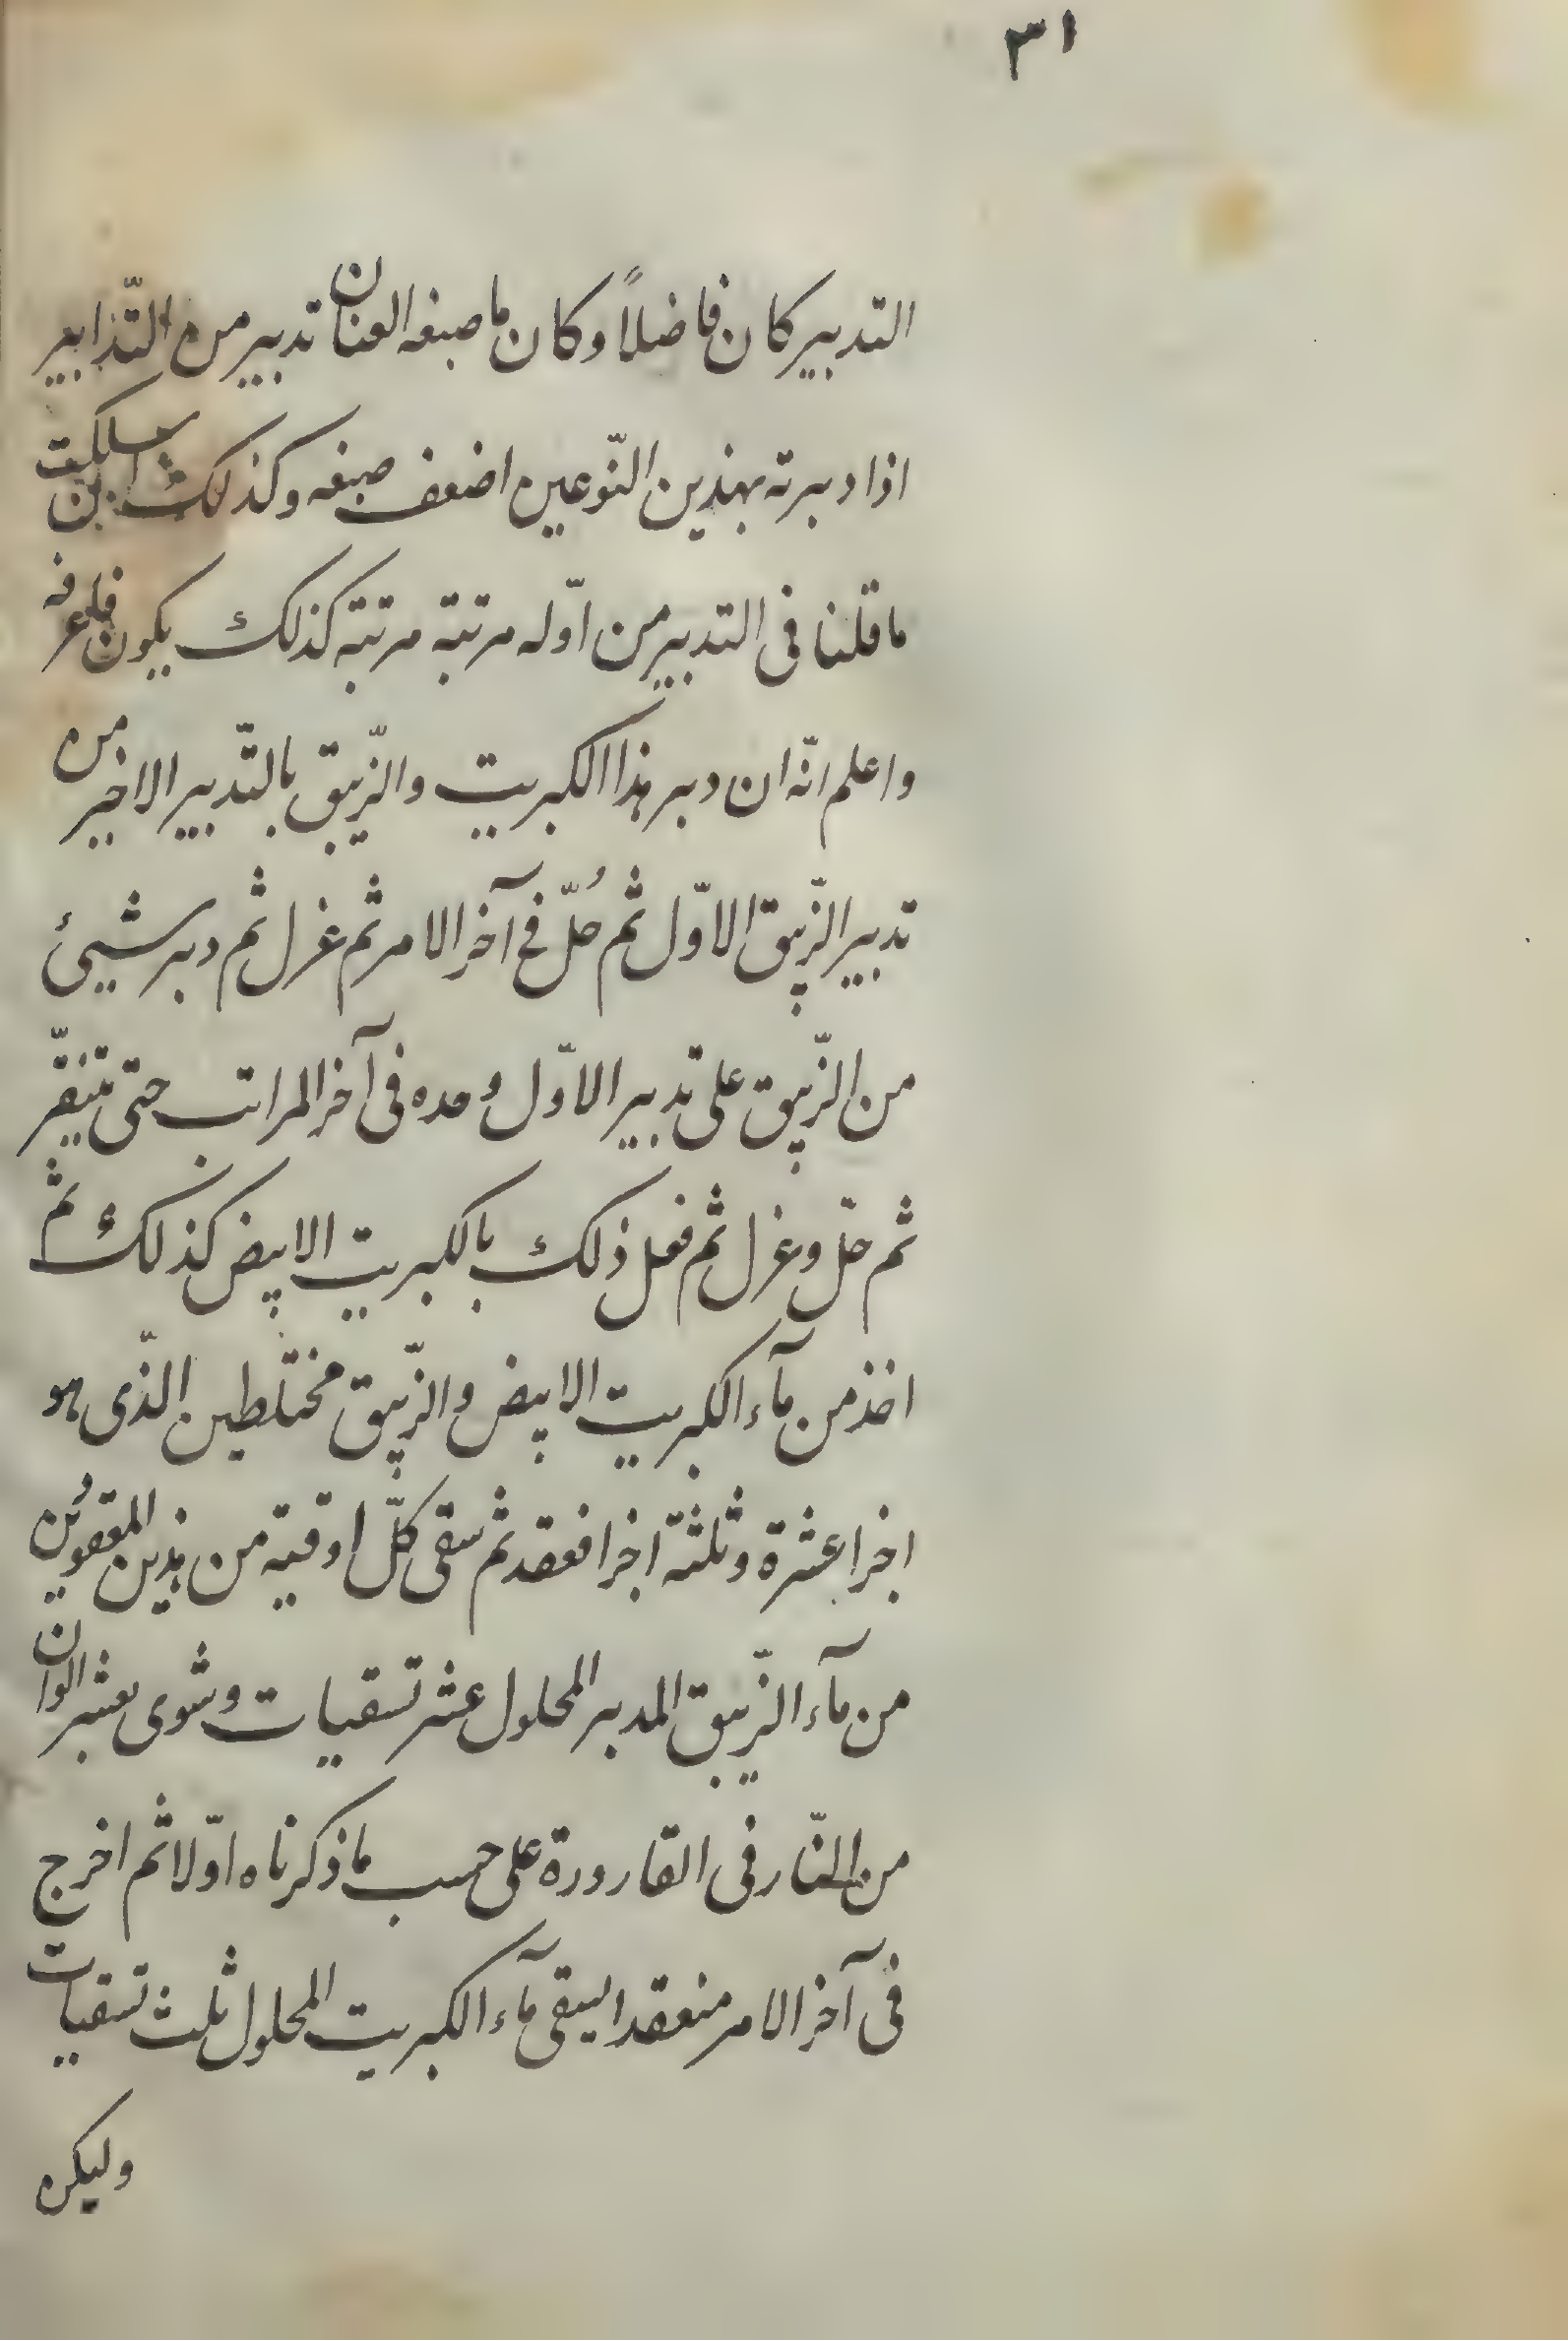 ٣١
التدبير كان فاضلاً وكان ما صبغه الفان تدبير من التّدابير
اذا دبرته بهذين النّوعين اضعف صبغه وكذلك ان سلكت
ما قلنا فى التدبير من اوّله مرتبة مرتبة كذلك يكون فاعرفه
واعلم انّه ان دبر هذا الكبريت والزّيبق بالتّدبير الاخير من
تدبير الزّيبق الاوّل ثم حُلّ فى آخر الامر ثم عزل ثم دبر شيئ
من الزّيبق على تدبير الاوّل وحده فى آخر المراتب حتى
ثم حلّ وعزل ثم فعل ذلك بالكبريت الابيض كذلك ثم
اخذ من مآء الكبريت الابيض والزّيبق مختلطين الذّى هو
اخرا عشرة وثلثة اخرا فعقد ثم سقى كلّ اوقية من هذين
من مآء الزّيبق المدبر المحلول عشر تسقيات وشوى بعشر الوان
من النّار فى القارورة على حسب ما ذكرناه اوّلا ثم اخرج
فى آخر الامر منعقدا ليسقى مآء الكبريت المحلول ثلث تسقيات
وليكن